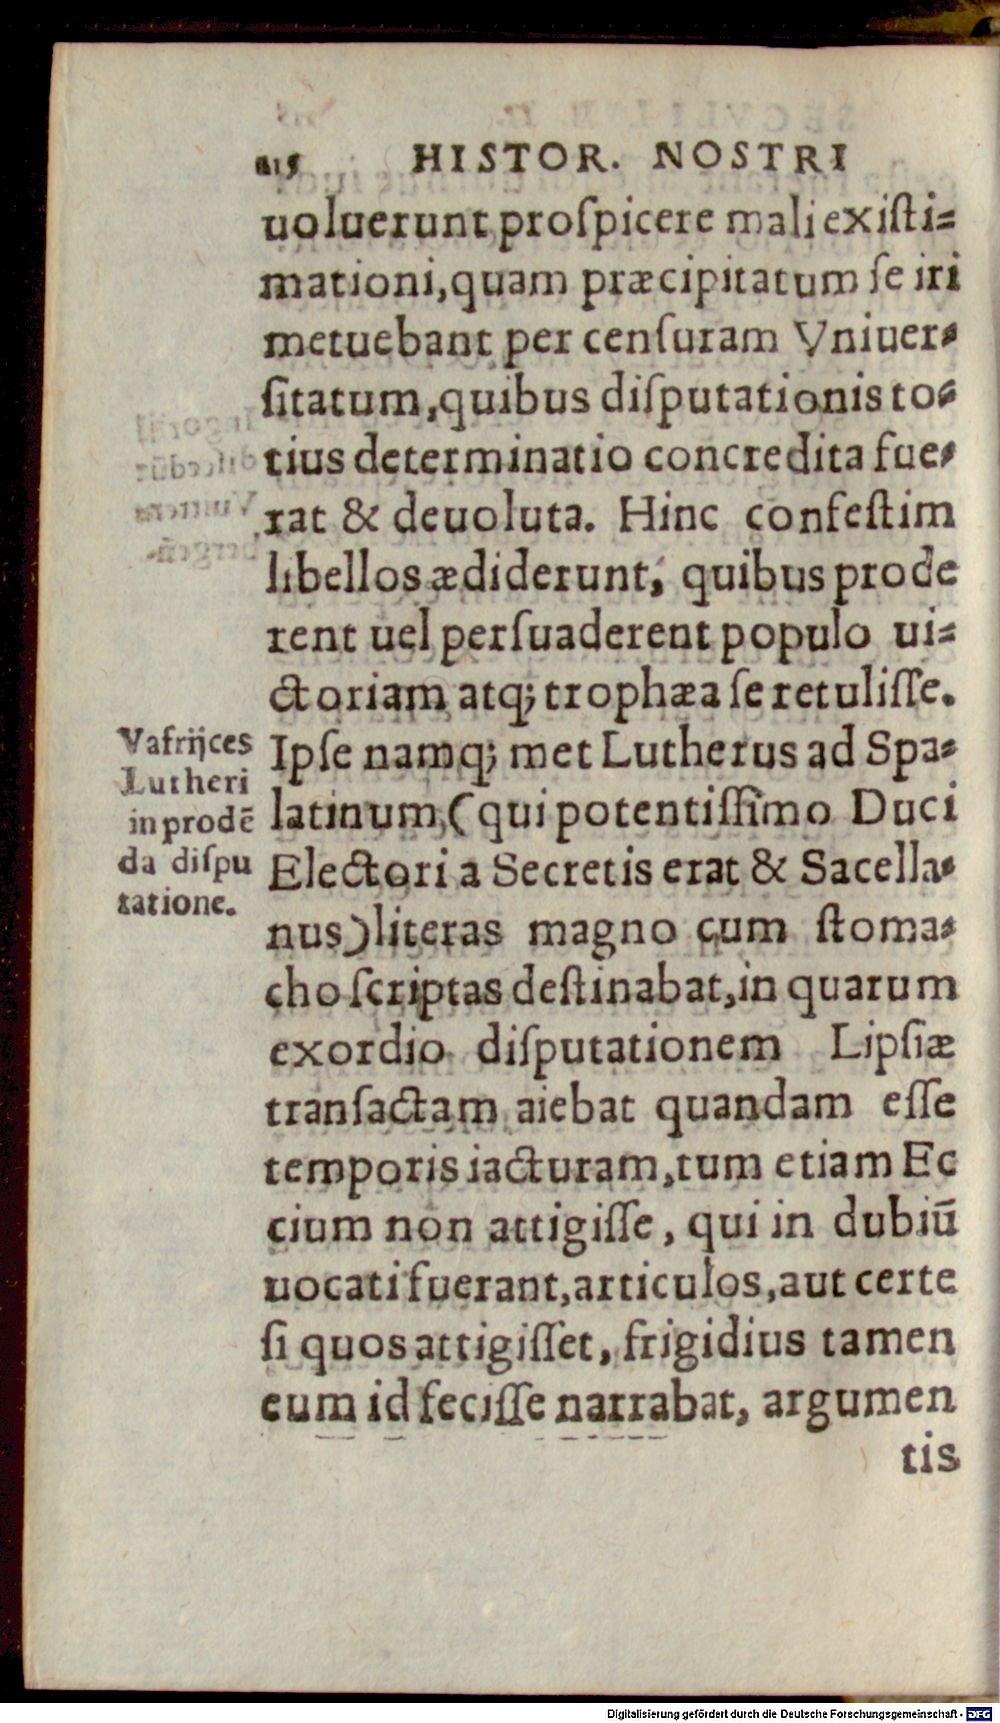 215 HISTOR. NOSTRI
uoluerunt proſpicere mali exiſti=
mationi, quam præcipitatum ſe iri
metuebant per cenſuram Vniuer=
ſitatum, quibus diſputationis to=
tius determinatio concredita fue=
rat & deuoluta. Hinc confeſtim
libellos ædiderunt, quibus prode
rent uel perſuaderent populo ui=
ctoriam atq; trophæa ſe retuliſſe.
Ipſe namq; met Lutherus ad Spa=
latinum, (qui potentiſſimo Duci
Electori a Secretis erat & Sacella=
nus) literas magno cum ſtoma=
cho ſcriptas deſtinabat, in quarum
exordio diſputationem Lipſiæ
transactam aiebat quandam eſſe
temporis iacturam, tum etiam Ec
cium non attigiſſe, qui in dubiū
uocati fuerant, articulos, aut certe
ſi quos attigiſſet, frigidius tamen
eum id feciſſe narrabat, argumen
tis
Vafrijces
Lutheri
in prodē
da diſpu
tatione.
Digitalisierung gefördert durch die Deutsche Forschungsgemeinschaft - DFG